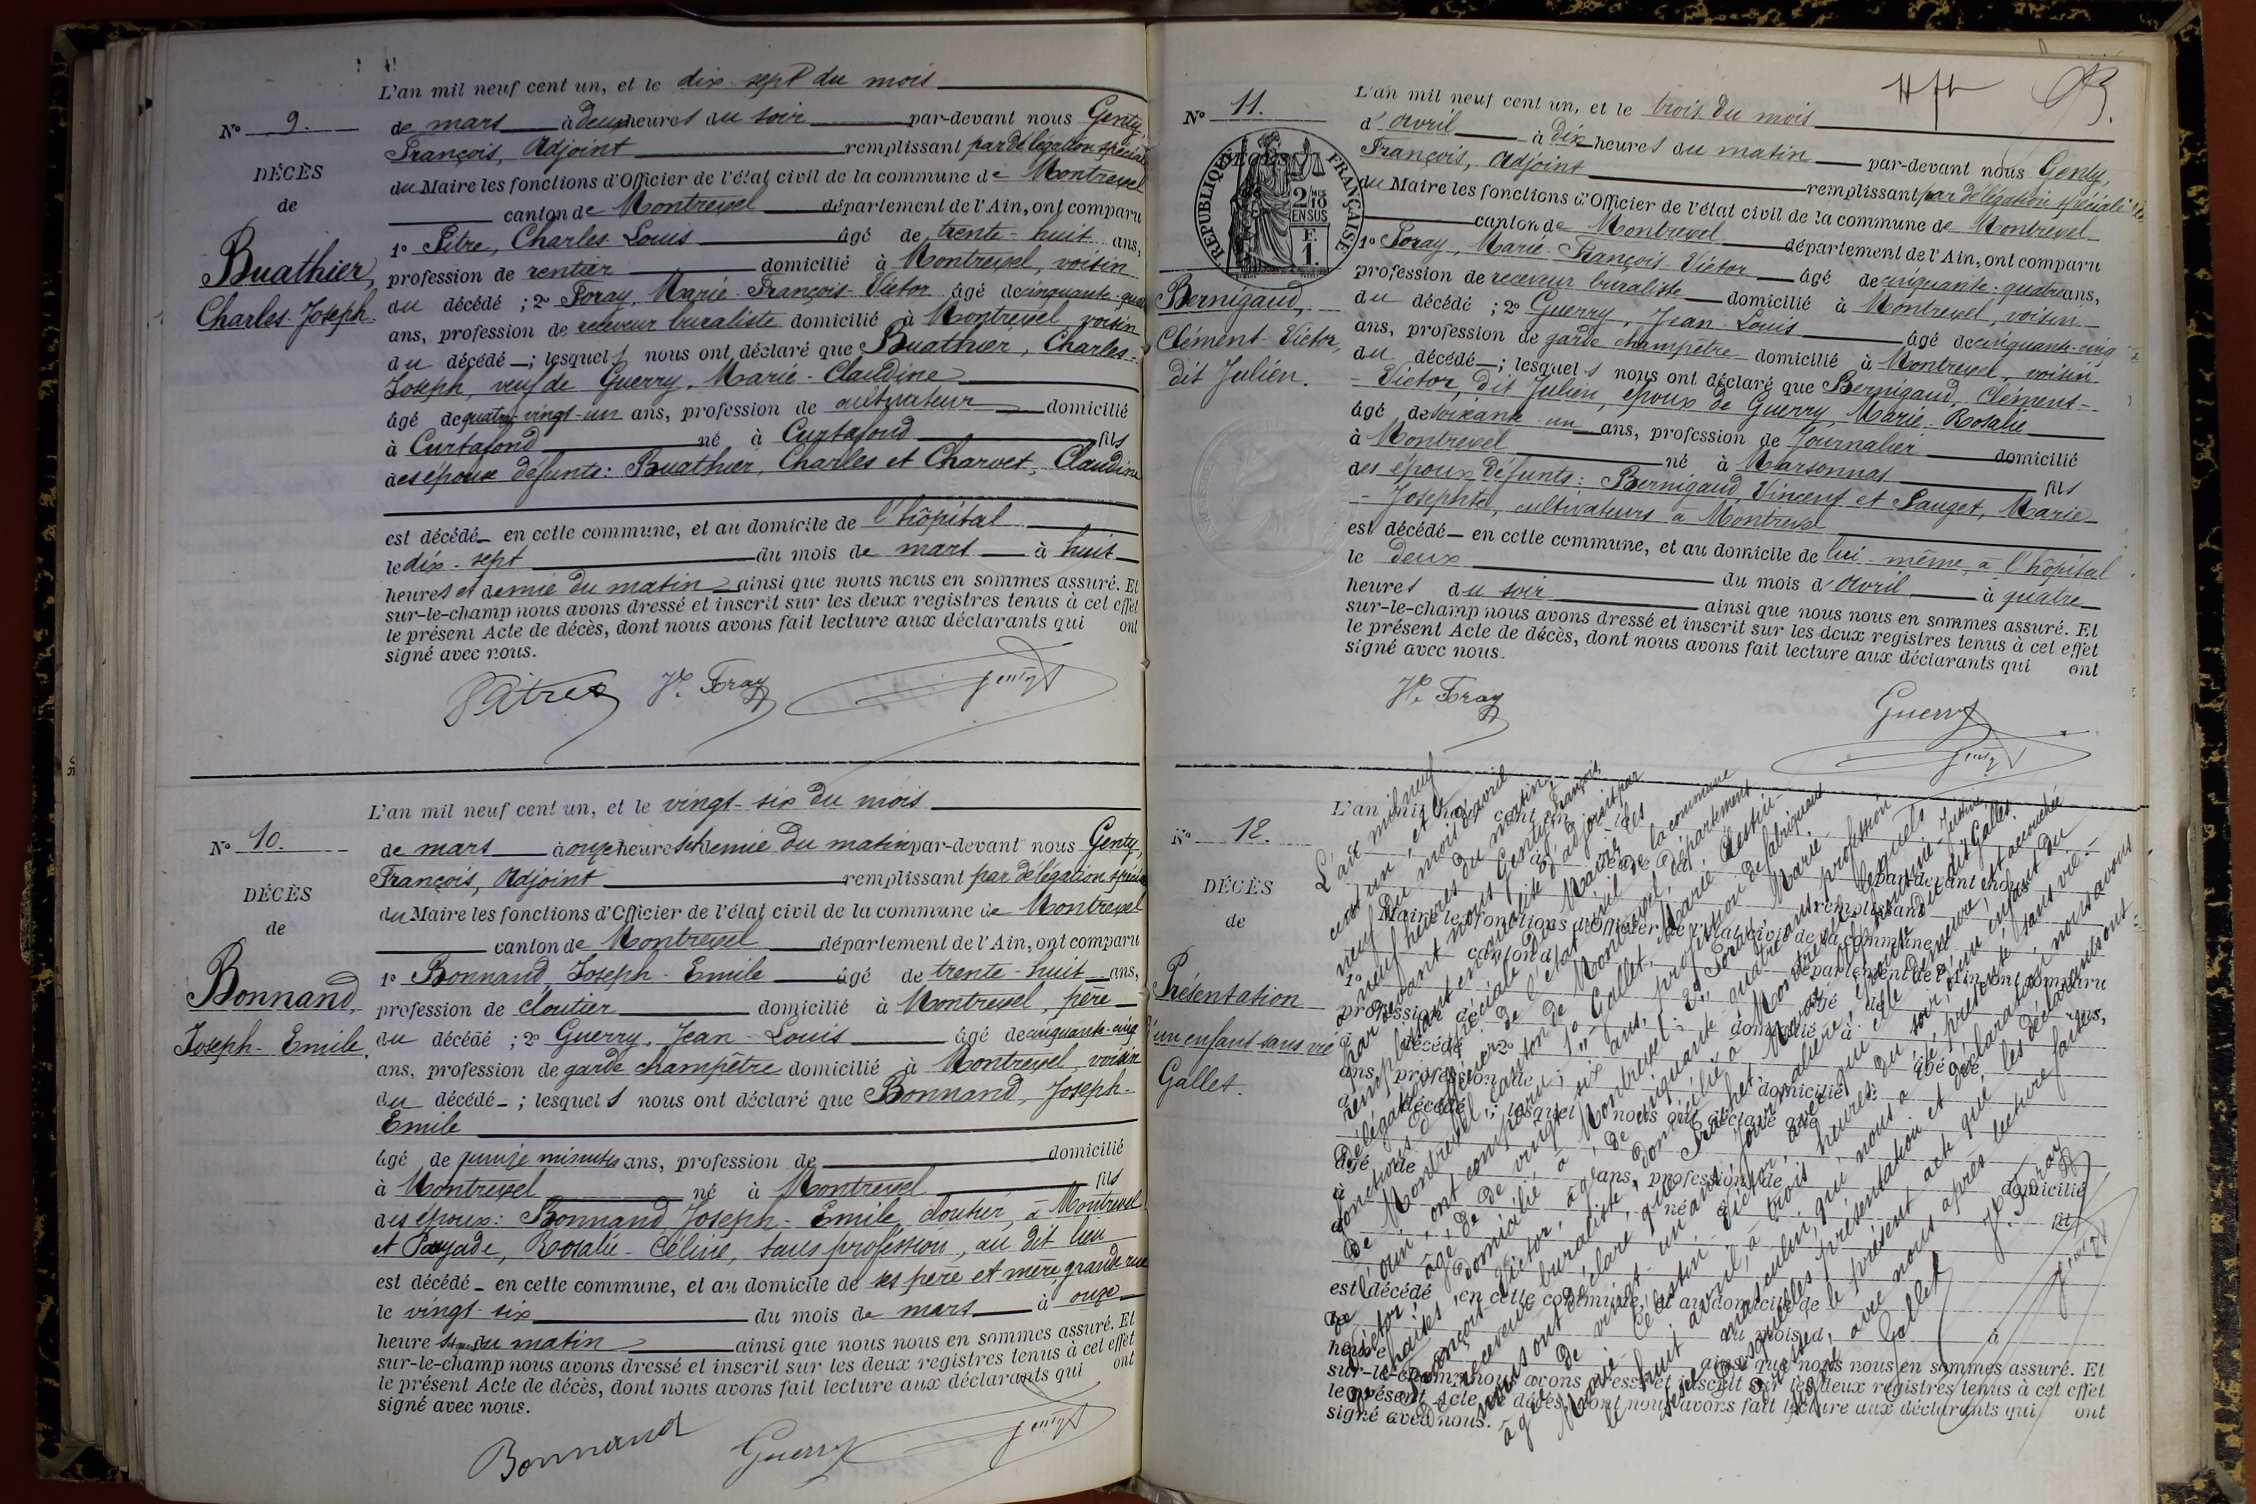 L'an mil neuf cent un, et le dix-sept du mois
N° 9.
de mars à deux heures du soir par-devant nous Genty,
François, Adjoint remplissant par délégation spéciale
DÉCÈS
du Maire les fonctions d'Officier de l'état civil de la commune de Montrevel
de
canton de Montrevel département de l'Ain, ont comparu
1° Pitre, Charles Louis âgé de trente-huit ans,
Buathier,
Charles-Joseph.
profession de rentier domicilié à Montrevel, voisin
du décédé ; 2° Foray, Marie-François-Victor âgé de cinquante-quatre
ans, profession de receveur buraliste domicilié à Montrevel voisin
du décédé ; lesquels nous ont déclaré que Buathier, Charles-
Joseph, veuf de Guerry, Marie-Claudine
âgé de quatre-vingt-un ans, profession de cultivateur domicilié
à Curtafond né à Curtafond fils
des époux défunts : Buathier, Charles et Charvet, Claudine
est décédé en cette commune, et au domicile de l'hôpital
le dix-sept du mois de mars à huit
heures et demie du matin ainsi que nous nous en sommes assuré. Et
sur-le-champ nous avons dressé et inscrit sur les deux registres tenus à cet effet
le présent Acte de décès, dont nous avons fait lecture aux déclarants qui ont
signé avec nous.
Pitre Vr Foray Genty
L'an mil neuf cent un, et le vingt-six du mois
N° 10.
de mars à onze heures et demie du matin par-devant nous Genty,
François, Adjoint remplissant par délégation spéciale
DÉCÈS
du Maire les fonctions d'Officier de l'état civil de la commune de Montrevel
de
canton de Montrevel département de l'Ain, ont comparu
1° Bonnand, Joseph-Emile âgé de trente-huit ans,
Bonnand,
Joseph-Emile.
profession de cloutier domicilié à Montrevel, père
du décédé ; 2° Guerry, Jean-Louis âgé de cinquante-cinq
ans, profession de garde champêtre domicilié à Montrevel, voisin
du décédé ; lesquels nous ont déclaré que Bonnand, Joseph-
Emile
âgé de quinze minutes ans, profession de domicilié
à Montrevel né à Montrevel fils
des époux : Bonnand Joseph-Emile, cloutier, à Montrevel
et Rosalie-Céline, sans profession, au dit lieu
est décédé en cette commune, et au domicile de ses père et mère, grande rue
le vingt-six du mois de mars à onze
heures du matin ainsi que nous nous en sommes assuré. Et
sur-le-champ nous avons dressé et inscrit sur les deux registres tenus à cet effet
le présent Acte de décès, dont nous avons fait lecture aux déclarants qui ont
signé avec nous.
Bonnand Guerry Genty
L'an mil neuf cent un, et le trois du mois
N° 11.
d'avril à dix heures du matin par-devant nous Genty,
François, Adjoint remplissant par délégation spéciale
RÉPUBLIQUE FRANÇAISE
2/10 EN SUS
F. 1.
du Maire les fonctions d'Officier de l'état civil de la commune de Montrevel
canton de Montrevel département de l'Ain, ont comparu
1° Foray, Marie-François-Victor âgé de cinquante-quatre ans,
Bernigaud,
Clément-Victor,
dit Julien.
profession de receveur buraliste domicilié à Montrevel, voisin
du décédé ; 2° Guerry, Jean-Louis âgé de cinquante-cinq
ans, profession de garde champêtre domicilié à Montrevel, voisin
du décédé ; lesquels nous ont déclaré que Bernigaud, Clément-
Victor, dit Julien, époux de Guerry, Marie-Rosalie
âgé de soixante-un ans, profession de Journalier domicilié
à Montrevel né à Marsonnas fils
des époux défunts : Bernigaud, Vincent et Pauget, Marie
Josephte, cultivateurs à Montrevel
est décédé en cette commune, et au domicile de lui-même, à l'hôpital
le deux du mois d'avril à quatre
heures du soir ainsi que nous nous en sommes assuré. Et
sur-le-champ nous avons dressé et inscrit sur les deux registres tenus à cet effet
le présent Acte de décès, dont nous avons fait lecture aux déclarants qui ont
signé avec nous.
Vr Foray Guerry
Genty
N° 12.
DÉCÈS
de
Présentation
d'un enfant sans vie
Gallet.
L'an mil neuf
cent un, et le
neuf du mois d'avril
à neuf heures du matin,
par devant nous Genty, François,
remplissant en qualité d'adjoint par
délégation spéciale du Maire les
fonctions d'officier de l'état civil de la commune
de Montrevel, canton de Montrevel, département
de l'ain, ont comparu : 1° Gallet, Marie Célestin-
Victor, âgé de vingt-six ans, profession de fabriquant
de chaises, domicilié à Montrevel ; 2° Foray, Marie-
François-Victor, âgé de cinquante-quatre ans, profession
de receveur buraliste, domicilié à Montrevel, lesquels
nous ont déclaré que
âgée de vingt-un ans, épouse du dit Gallet
Marie-Célestin-Victor, avec qui elle demeure, est accouchée
le huit avril, à trois heures du soir, d'un enfant du
sexe masculin, qui nous a été présenté sans vie.
Desquelles présentation et déclaration nous avons
dressé le présent acte que les déclarants ont
signé avec nous après lecture faite.
Gallet Vr Foray
Genty